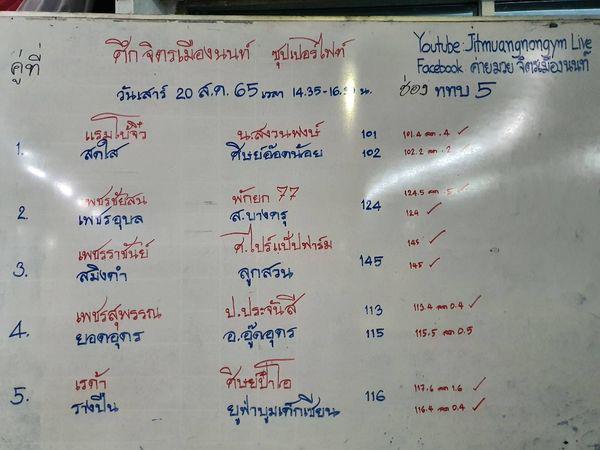 ศึกจิตรเมืองนนท์ ซุปเปอร์ไฟต์
Youtube: Jitmuangnongym Live
Facebook ค่ายมวย จิตรเมืองนนท์
คู่ที่
วันเสาร์ 20 ส.ค. 65 เวลา 14.35-16.30 น. ช่อง ททบ 5
1. แรมโบ้จิ๋ว น.สงวนพงษ์ 101 101.4 ลด .4 ✓
สดใส ศิษย์อ๊อดน้อย 102 102.2 ลด .2 ✓
2. เพชรชัยสน พักยก 77 124 124.5 ลด .5 ✓
เพชรอุบล ส.บางครุ 124 ✓
3. เพชรราชันย์ ศ.ไปร์แป๋ปฟาร์ม 145 145 ✓
สมิงดำ ลูกสวน 145 ✓
4. เพชรสุพรรณ ป.ประจันสี 113 113.4 ลด 0.4 ✓
ยอดอุดร อ.อู๊ดอุดร 115 115.5 ลด 0.5
5. เรด้า ศิษย์ป๋าโอ 116 117.6 ลด 1.6 ✓
รางปืน ยูฟ่าบูมเด็กเซียน 116.4 ลด 0.4 ✓